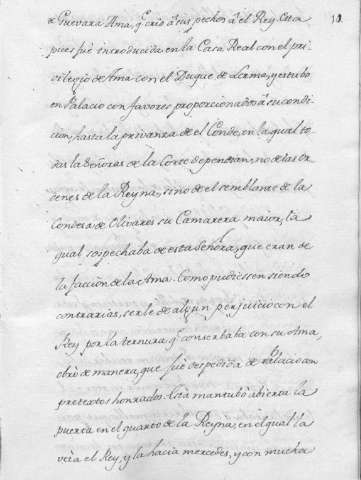 10.
Guevara Ama, q̃ crio à sus pechos à el Rey. Esta
pues fuè introducida en la Casa Real con el pri-
vilegio de Ama con el Duque de Lerma, y estubo
en Palacio con favores proporcionados à su condi-
cion, hasta la privanza de el Conde, en la qual to-
das las Señoras de la Corte dependian, no de las or-
denes de la Reyna, sino de el semblante de la
Condesa de Olivares su Camarera maior, la
qual sospechaba de esta Señora, que eran de
la faccion de la Ama. Como pudiessen siendo
contrarias, serle de algun perjuicio con el
Rey por la ternura, q̃ conserbaba con su Ama,
obrò de manera, que fuè despedida de Palacio con
pretextos honrados. Esta mantubo abierta la
puerta en el quarto de la Reyna, en el qual la
veìa el Rey, y la hacia mercedes, y con mucha